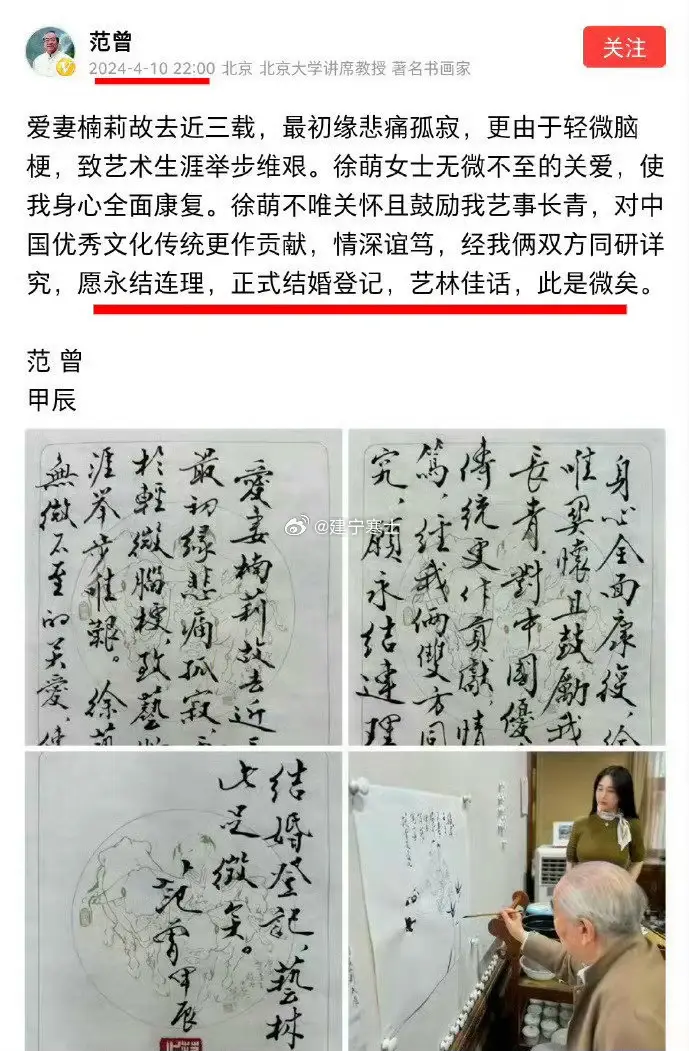 范曾
关注
2024-4-10 22:00 北京 北京大学讲席教授 著名书画家
爱妻楠莉故去近三载，最初缘悲痛孤寂，更由于轻微脑
梗，致艺术生涯举步维艰。徐萌女士无微不至的关爱，使
我身心全面康复。徐萌不唯关怀且鼓励我艺事长青，对中
国优秀文化传统更作贡献，情深谊笃，经我俩双方同研详
究，愿永结连理，正式结婚登记，艺林佳话，此是微矣。
范 曾
甲辰
愛妻楠莉故去近三
最初缘悲痛孤寂，
於輕微腦梗，致藝
涯举步唯艱。徐萌
無微不至的关爱，使
身心全面康復，徐
唯関懷且鼓勵我
長青，對中國優
傳統更作貢獻，情
篤，经我俩雙方同
究，願永结連理
结婚登记，藝林
此是微矣。
范曾甲辰
@建宁寒士